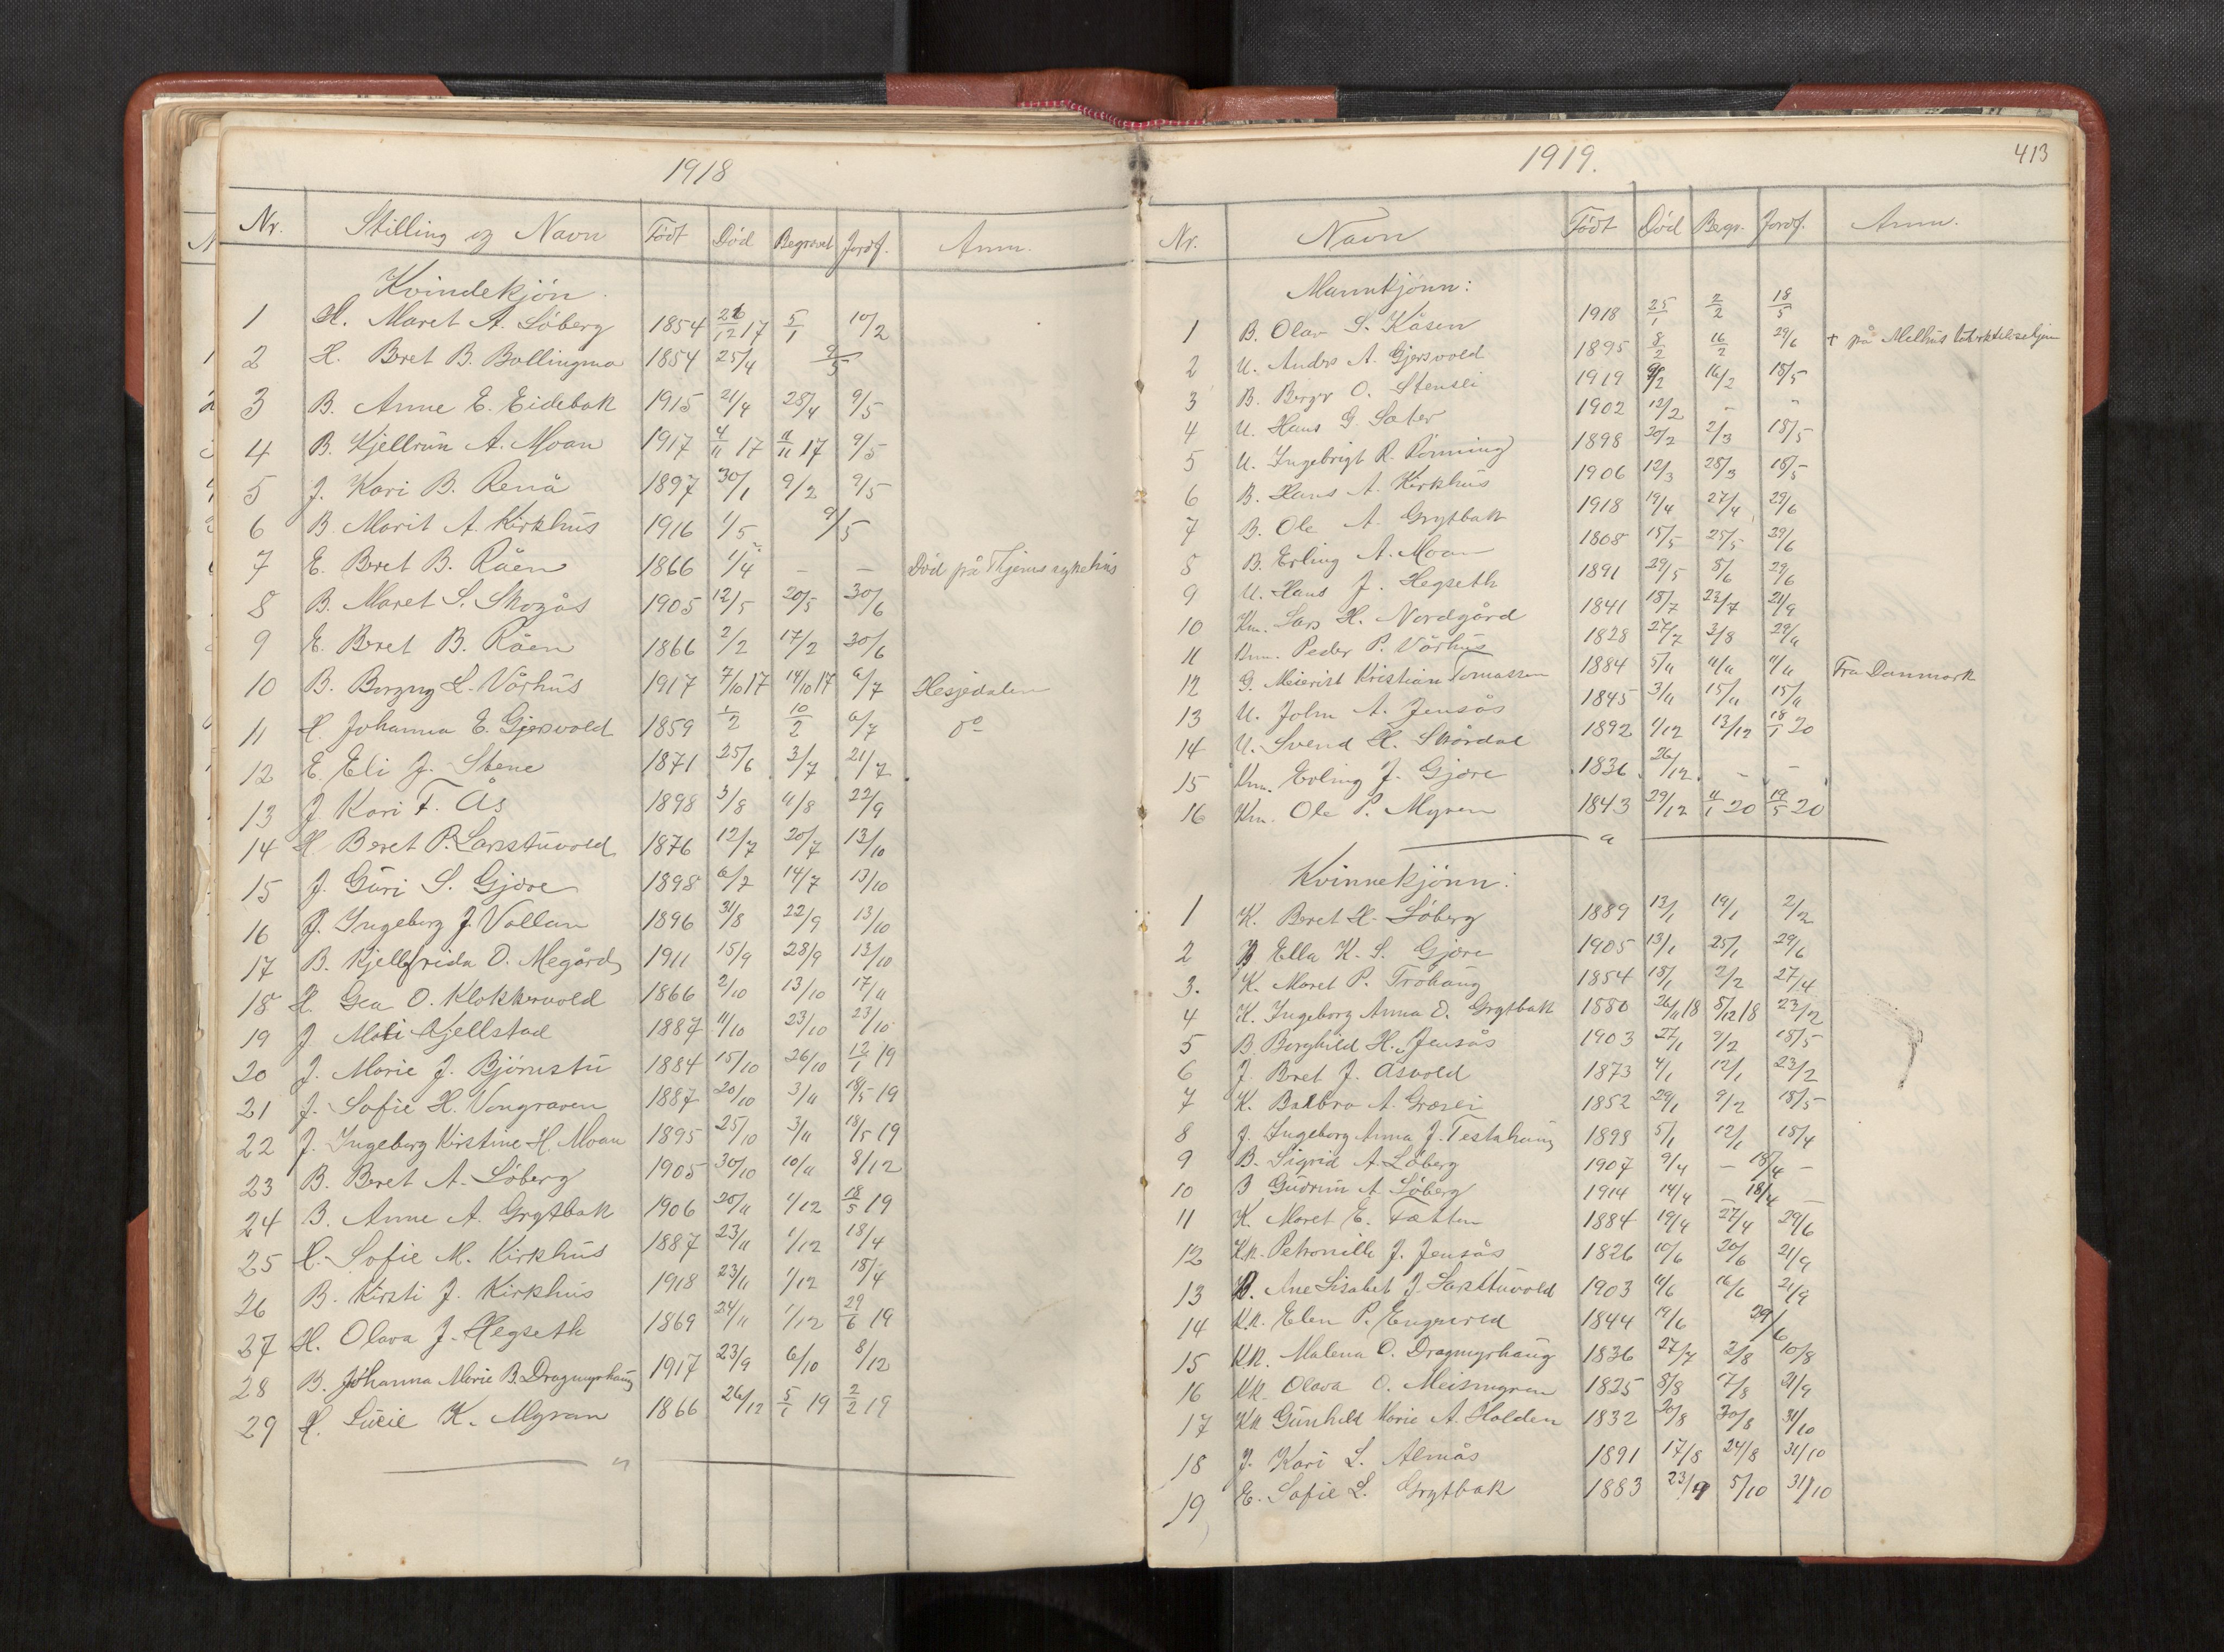 1918
Nr. Stilling og Navn Födt Död Begravet Jordf. Anm.
Kvindekjön.
1 H. Maret A. Löberg 1854 26/12 17 5/1 10/2
2 H. Beret B. Bollingmo 1854 25/4 9/5
3 B. Anne E. Eidebak 1915 21/4 28/4 9/5
4 B. Kjellrun A. Moan 1917 4/11 17 11/11 17 9/5
5 J. Kari B. Renå 1897 30/1 9/2 9/5
6 B. Marit A. Kirkhus 1916 1/5 9/5
7 E. Beret B. Råen 1866 1/4 – – Död på Thjems sykehus
8 B. Maret S. Skogås 1905 12/5 20/5 30/6
9 E. Beret B. Råen 1866 2/2 17/2 30/6
10 B. Borgny L. Vårhus 1917 7/10 17 14/10 17 6/7 Hesjedalen
11 H. Johanna E. Gjersvold 1859 1/2 10/2 6/7 do
12 E. Eli J. Stene 1871 25/6 3/7 21/7
13 J Kari T. Ås 1898 3/8 11/8 22/9
14 H Beret P. Larsstuvold 1876 12/7 20/7 13/10
15 J. Guri S. Gjøre 1898 6/7 14/7 13/10
16 J. Ingeborg J. Vollan 1896 31/8 22/9 13/10
17 B. Kjellfrida O. Megård 1911 15/9 28/9 13/10
18 H. Gea O. Klokkervold 1866 2/10 13/10 17/11
19 J Moli Kjellstad 1887 11/10 23/10 23/10
20 J. Marie J. Bjørnstu 1884 15/10 26/10 12/1 19
21 J. Sofie H. Vongraven 1887 20/10 3/11 18/5 19
22 J. Ingeborg Kirstine H. Moan 1895 25/10 3/11 18/5 19
23 B. Beret A. Löberg 1905 30/10 10/11 8/12
24 B. Anne A. Grytbak 1906 20/11 1/12 18/5 19
25 H. Sofie M. Kirkhus 1887 23/11 1/12 18/4
26 B. Kirsti J. Kirkhus 1918 23/11 1/12 18/4
27 H. Olava J. Hegseth 1869 24/11 1/12 29/6 19
28 B. Johanna Marie B. Dragmyrhaug 1917 23/9 6/10 8/12
29 H. Lucie K. Myran 1866 26/12 5/1 19 2/2 19
1919. 413
Nr. Navn Födt Död Begr. Jordf. Anm.
Mannkjönn:
1 B. Olav S. Kåsen 1918 25/1 2/2 18/5
2 U. Anders A. Gjersvold 1895 8/2 16/2 29/6 + på Melhus
3 B. Berger O. Stensli 1919 9/2 16/2 18/5
4 U. Hans G. Sater 1902 12/2 – –
5 U. Ingebrigt R. Rönning 1898 20/2 2/3 18/5
6 B. Hans A. Kirkhus 1906 12/3 28/3 18/5
7 B. Ole A. Grytbak 1918 19/4 27/4 29/6
8 B. Erling A. Moan 1808 15/5 25/5 29/6
9 U. Hans J. Hegseth 1891 29/5 8/6 29/6
10 Km. Lars H. Nordgård 1841 18/7 23/7 21/9
11 Km. Peder P. Vårhus 1828 27/7 3/8 29/11
12 G. Meierist Kristian Tomassen 1884 5/11 11/11 11/11 Fra Danmark
13 U. John A. Jensås 1845 3/11 15/11 15/11
14 U. Svend H. Skårdal 1892 1/12 13/12 18/1 20
15 Km. Erling J. Gjøre 1836 26/12 – –
16 Km. Ole P. Myren 1843 29/12 11/1 20 19/5 20
Kvinnekjönn:
1 K. Beret H. Löberg 1889 13/1 19/1 2/2
2 B Ella K. S. Gjøre 1905 13/1 25/1 29/6
3. K. Maret P. Tröhaug 1854 18/1 2/2 27/4
4 K. Ingeborg Anna O. Grytbak 1880 26/11 18 8/12 18 23/2
5 B. Borghild H. Jensås 1903 27/1 9/2 18/5
6 J. Beret J. Åsvold 1873 4/1 12/1 23/2
7 K. Balbra A. Græsli 1852 29/1 9/2 18/5
8 J. Ingeborg Anna J. Testahaug 1899 5/1 12/1 18/4
9 B. Sigrid A. Löberg 1907 9/4 – 18/4 –
10 B Gudrun A Löberg 1914 14/4 – 18/4 –
11 K. Maret E. Tætten 1884 19/4 27/4 29/6
12 Kk. Petronille J. Jensås 1826 10/6 20/6 21/9
13 B. Ane Lisabet J. Larsstuvold 1903 11/6 16/6 21/9
14 Kk. Elen P. Engesved 1844 19/6 29/6
15 Kk. Malena O. Dragmyrhaug 1836 27/7 2/8 10/8
16 Kk. Olava O. Meismyren 1825 8/8 17/8 21/9
17 Kk Gunhild Marie A. Holden 1832 20/8 30/8 31/10
18 J. Kari L. Almås 1891 17/8 24/8 31/10
19 E. Sofie L. Grytbak 1883 23/9 5/10 31/10